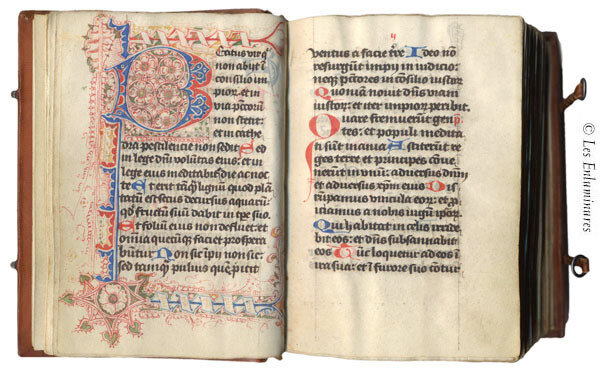 Beatus vir q̇
non abijt ī
consilio im
pioꝝ et in
via pc̄coꝝ
non stetit
et in cathe
dra pestilencie non sedit Sed
in lege dn̄i volūtas eius et in
lege eius meditabit̄ die ac noc
te Et erit tāqͣ lignū quod plā
tatū est secus decursus aquaꝝ
qd̄ fructū suū dabit in tp̄e suo
Et foliū eius non defluet et
omīa quecūqꝫ faciet prospera
būtur Non sic impij non sic
sed tamqͣ puluis quē ꝓicit
ventus a facie tr̄e Ideo nō
resurgūt impij in iudicio
neqꝫ pc̄tores in cōsilio iustoꝝ
Quoniā nouit dn̄s viam
iustoꝝ et iter impioꝝ peribit
Quare fremuerūt gen
tes et populi medita
ti sūt inania Astiterūt re
ges terre et principes cōue
nerūt in vnū aduersus dn̄m
et aduersus xp̄m eius Dis
rūpamus vincula eoꝝ et ꝓ
iciamus a nobis iugū ip̄oꝝ
Qui habitat in celis irride
bit eos et dn̄s subsannabit
eos Tūc loquetur ad eos ī
ira sua et ī furore suo cōtur
© Les Enluminures